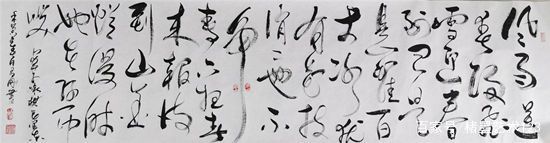 风雨送
春归飞
雪迎春
到已是
悬崖百
丈冰犹
有花枝
俏也不
争
春只把春
来报待
到山花
烂漫时
她在丛中
笑
百家号